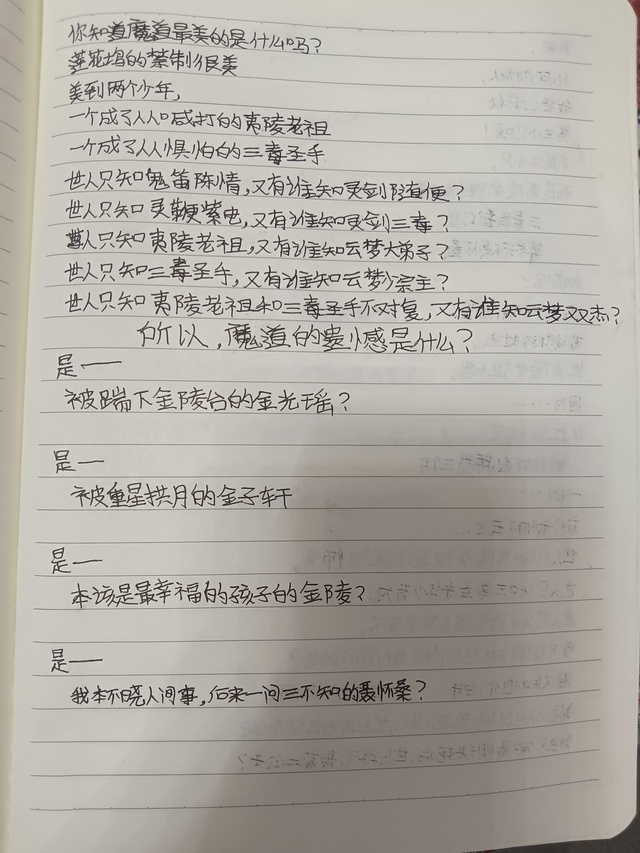 你知道魔道最美的是什么吗？
莲花坞的禁制很美
美到两个少年，
一个成了人人喊打的夷陵老祖
一个成了人人惧怕的三毒圣手
世人只知鬼笛陈情，又有谁知灵剑随便？
世人只知灵鞭紫电，又有谁知灵剑三毒？
世人只知夷陵老祖，又有谁知云梦大弟子？
世人只知三毒圣手，又有谁知云梦宗主？
世人只知夷陵老祖和三毒圣手不对复，又有谁知云梦双杰？
所以，魔道的遗憾是什么？
是——
被踹下金陵台的金光瑶？
是——
被重星拱月的金子轩
是——
本该是最幸福的孩子的金陵？
是——
我本不晓人间事，后来一问三不知的聂怀桑？